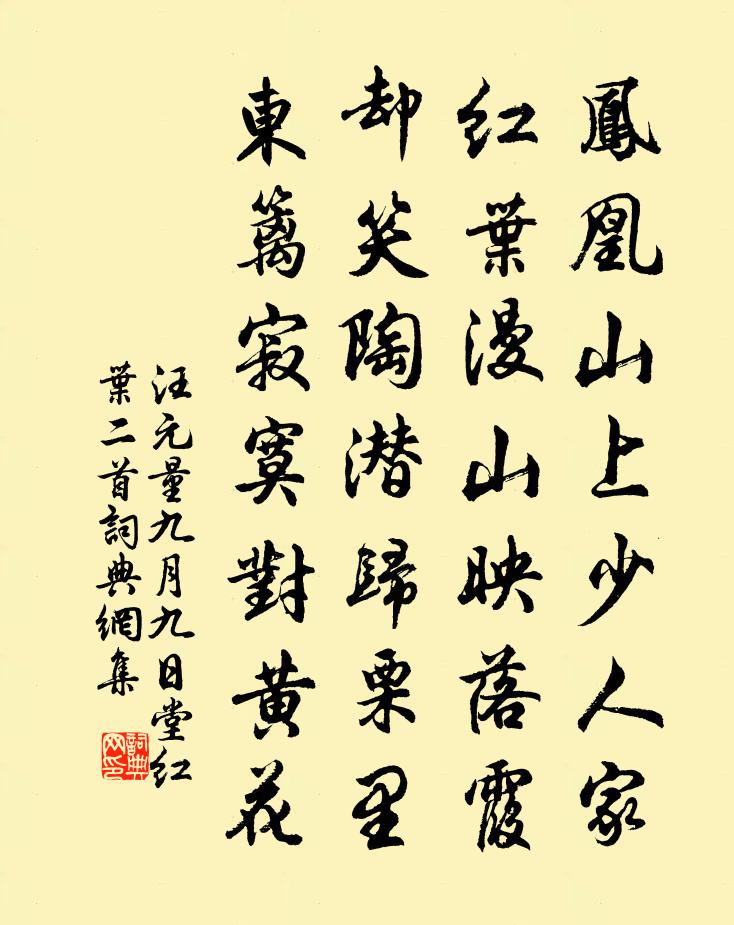 鳳凰山上少人家
紅葉漫山映落霞
却笑陶潜歸栗里
東籬寂寞對黃花
汪元量九月九日堂紅
葉二首詞典網集
詞典
网印